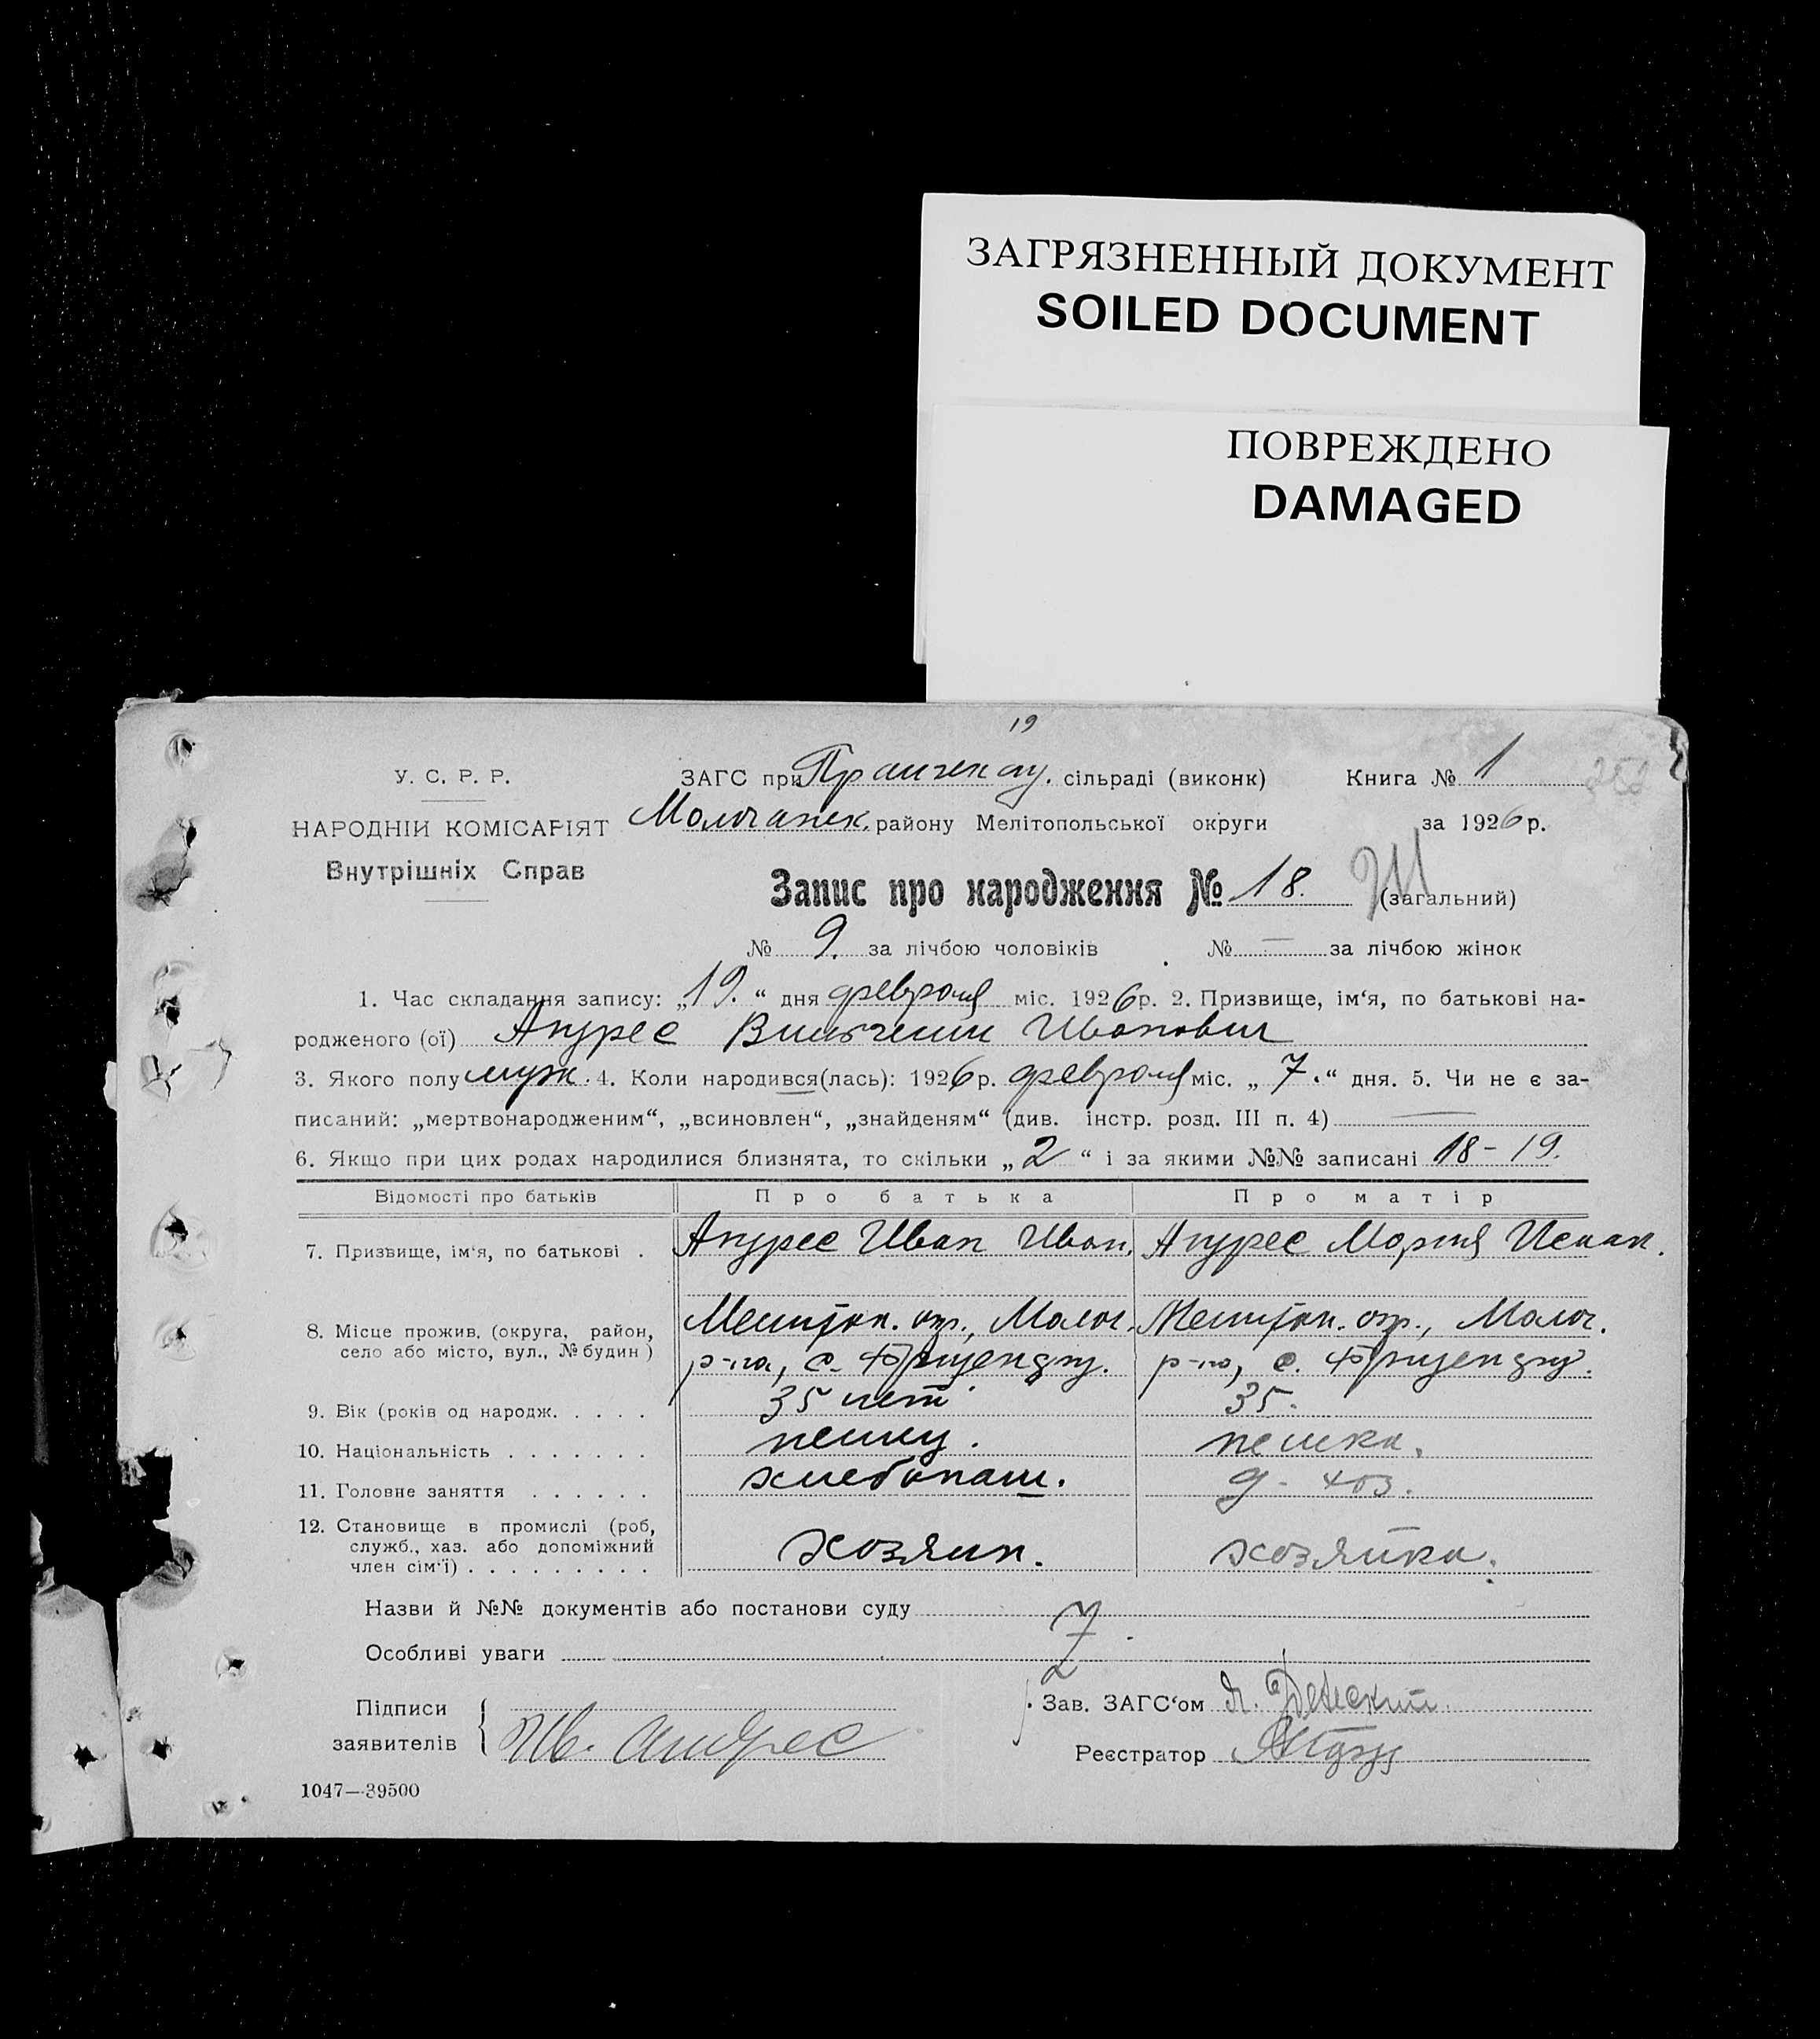 ЗАГРЯЗНЕННЫЙ ДОКУМЕНТ
SOILED DOCUMENT
ПОВРЕЖДЕНО
DAMAGED
19
У. С. Р. Р.
НАРОДНІЙ КОМІСАРІЯТ
Внутрішніх Справ
ЗАГС при Прангенау. сільраді (виконк)
Книга № 1
Молочанск. району Мелітопольської округи
за 1926 р.
Запис про народження № 18. (загальний)
№ 9. за лічбою чоловіків № — за лічбою жінок
1. Час складання запису: „19.“ дня февраля міс. 1926 р. 2. Призвище, ім‘я, по батькові на-
родженого (ої) Андрес Вильгелм Иванович
3. Якого полу муж. 4. Коли народився(лась): 1926 р. февраля міс. „7.“ дня. 5. Чи не є за-
писаний: „мертвонародженим“, „всиновлен“, „знайденям“ (див. інстр. розд. III п. 4) —
6. Якщо при цих родах народилися близнята, то скільки „2“ і за якими №№ записані 18-19.
Відомості про батьків Про батька Про матір
7. Призвище, ім‘я, по батькові . Андрес Иван Иван. Андрес Мария Исаак.
8. Місце прожив. (округа, район, село або місто, вул., № будин)
Мелитоп. окр., Молоч. Мелитоп. окр., Молоч.
р-на, с. р-на, с.
9. Вік (років од народж. . . . . 35 лет 35.
10. Національність . . . . . . . немец. немка.
11. Головне заняття . . . . . . хлебопаш. д. хоз.
12. Становище в промислі (роб,
служб., хаз. або допоміжний
член сім‘ї) . . . . . . . . . хозяин. хозяйка.
Назви й №№ документів або постанови суду
Особливі уваги
Підписи
заявителів
Ив. Андрес
Зав. ЗАГС‘ом
Реєстратор
1047—39500